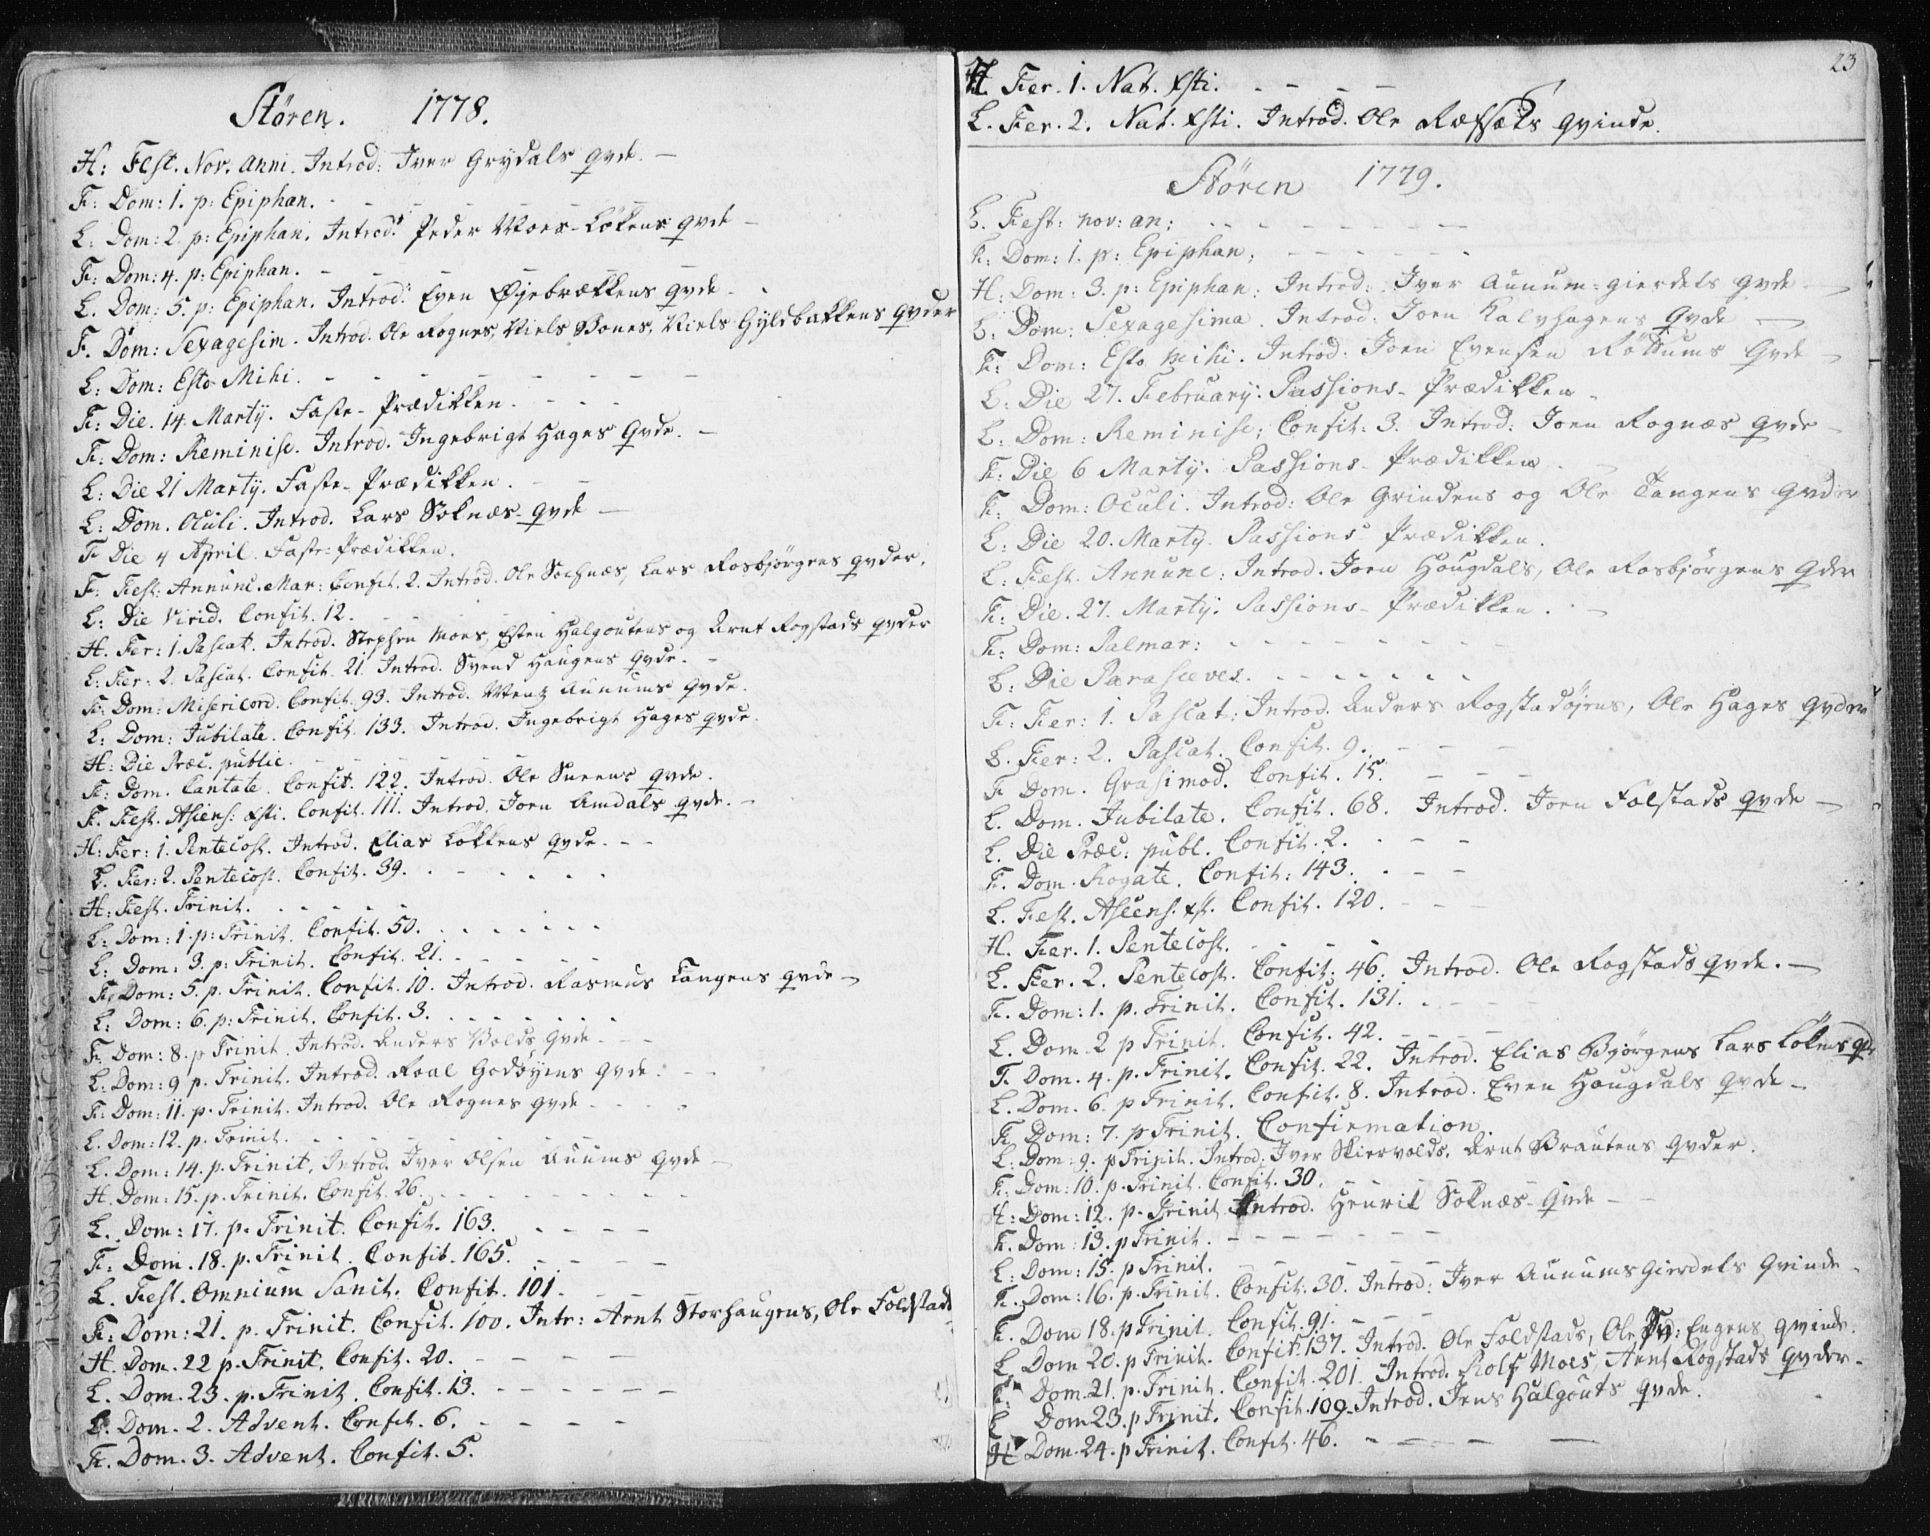 Stören. 1778.
H: Fest. Nov. Anni. Introd: Iver Grydals qvde. —
F: Dom: 1. p: Epiphan. - - - - - -
L: Dom: 2. p: Epiphan. Introd: Peder Moes-Lökens qvde —
F: Dom: 4. p: Epiphan. - - - - - -
L. Dom: 5. p: Epiphan. Introd: Even Øjebrækkens qvde -
F. Dom: Sexagesim. Introd. Ole Rognes, Niels Bones, Niels Gyldbakkens qvder
L: Dom: Esto Mihi. - - - - - - -
F: Die. 14 Martij. Faste-Prædikken. - - -
F: Dom: Reminisc. Introd. Ingebrigt Hages Qvde. —
L: Die 21 Martij. Faste-Prædikken. - -
L: Dom. Oculi. Introd. Lars Soknæs-Qvde —
F Die 4 April. Faste-Prædikken.
F. Fest: Annunc. Mar: Confit. 2. Introd. Ole Sochnæs, Lars Rosbjørgens qvder.
L: Die Virid. Confit. 12. - -
H. Fer: 1. Pascat. Introd. Stephen Moes, Esten Halgoutens og Arnt Rogstads qvder
L: Fer: 2. Pascat. Confit. 21. Introd. Svend Haugens Qvde. -
F: Dom: Misericord. Confit. 93. Introd. Wentz Aunums Qvde.
L: Dom: Jubilate. Confit. 133. Introd. Ingebrigt Hages qvde.
H: Die Præc. public. - - - - -
F: Dom. Cantate. Confit. 122. Introd. Ole Sneens qvde.
F. Fest. Ascens: Xsti. Confit. 111. Introd. Joen Amdals qvde. -
H: Fer: 1. Pentecost. Introd. Elias Lökkens Qvde. - -
L. Fer: 2. Pentecost. Confit. 39. - - - - -
H: Fest. Trinit. - - - - -
L: Dom: 1. p: Trinit. Confit. 50. - - - - - -
L: Dom: 3. p: Trinit. Confit. 21. - - - - -
F: Dom: 5. p. Trinit. Confit. 10. Introd. Rasmus Tangens qvde —
L: Dom: 6. p: Trinit. Confit. 3. - - - - - -
F. Dom: 8. p Trinit. Introd. Anders Volds Qvde - - -
L. Dom: 9 p. Trinit. Introd. Roal Godöyens Qvde. - -
F: Dom: 11. p. Trinit. Introd. Ole Rognes qvde - - -
L. Dom: 12. p. Trinit. - - - - - -
L. Dom: 14. p. Trinit. Introd. Iver Olsen Auums Qvde -
H. Dom: 15. p. Trinit. Confit. 26. - - - - - -
L. Dom: 17. p. Trinit. Confit. 163. - - - -
F. Dom. 18. p. Trinit. Confit. 165. - - - -
L. Fest. Omnium Sanct. Confit. 101. - - -
F: Dom: 21. p. Trinit. Confit. 100. Intr: Arnt Storhaugens, Ole Foldstads
H. Dom. 22 p. Trinit. Confit. 20. - - - -
L. Dom. 23. p. Trinit. Confit. 13. - - - - - -
L. Dom. 2. Advent. Confit. 6. - - - -
F. Dom. 3. Advent. Confit. 5.
23
H. Fer. 1. Nat. Xsti. - - - -
L. Fer. 2. Nat. Xsti. Introd. Ole Ræfsæks qvinde.
Stören 1779.
L. Fest: nov: an: - - - - - - -
F. Dom: 1. p: Epiphan; - - - - -
H: Dom: 3. p: Epiphan: Introd: Iver Aunum-gierdets Qvde —
L: Dom: Sexagesima. Introd: Joen Kalvhagens Qvde —
F: Dom: Esto Mihi. Introd: Joen Evensen Röttums Qvde -
L: Die 27. February: Passions-Prædikken -
L: Dom: Reminisc; Confit: 3. Introd: Joen Rognæs qvde -
F: Die 6 Martij. Passions-Prædikken.
F. Dom: Oculi. Introd: Ole Grindens og Ole Tangens Qvder
L: Die 20. Martij. Passions-Prædikken.
L: Fest. Annunc: Introd. Joen Hougdals, Ole Rosbjørgens Qder
F: Die. 27. Martij. Passions-Prædikken. -
F: Dom: Palmar: - - - - - -
L: Die Parasceves. - - - - - -
F: Fer: 1. Pascat: Introd. Anders Rogstadöjens, Ole Hages Qvder
L. Fer: 2. Pascat. Confit. 9. - - -
F Dom. Qvasimod. Confit. 15. - - -
L. Dom. Jubilate. Confit. 68. Introd. Joen Folstads qvde —
L. Die Præc: publ. Confit. 2. - - -
F. Dom. Rogate. Confit: 143. - - -
L. Fest. Ascens. Xst. Confit. 120. - - -
H. Fer. 1. Pentecost. - - - -
L. Fer. 2. Pentecost. Confit: 46. Introd. Ole Rogstads qvde. —
F. Dom: 1. p. Trinit. Confit. 131. - - - -
L. Dom. 2 p Trinit. Confit. 42. - - -
F. Dom. 4. p. Trinit. Confit. 22. Introd. Elias Bjørgens Lars Lökens qder
L. Dom. 6. p Trinit. Confit. 8. Introd. Even Hougdals qvde -
F. Dom: 7. p Trinit. Confirmation.
L: Dom: 9. p Trinit. Introd. Iver Skiervolds, Arnt Brautens qvder.
F: Dom: 10. p. Trinit. Confit. 30. - - - -
H: Dom: 12. p. Trinit. Introd. Henrik Soknæs-Qvde - -
F. Dom: 13. p Trinit. - - - - - - -
L: Dom: 15. p Trinit. - - - - -
F. Dom: 16. p Trinit. Confit. 30. Introd: Iver Aunums Gierdets Qvinde -
F. Dom 18. p Trinit. Confit. 91. - - -
L Dom 20. p Trinit. Confit. 137. Introd. Ole Foldstads, Ole Sv: Engens Qvinde.
F: Dom. 21. p. Trinit. Confit. 201. Introd. Rolf Moes, Arnt Rogstads Qvder -
L Dom 23. p Trinit. Confit. 109. Introd. Jens Halgouts Qvde.
H Dom. 24. p Trinit. Confit. 46. - - - - —